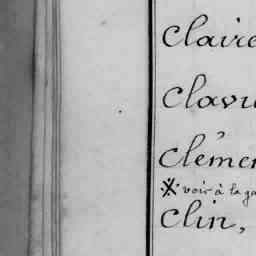 Claire
Clavi
Clémen
※ voir à la ga
Clin,